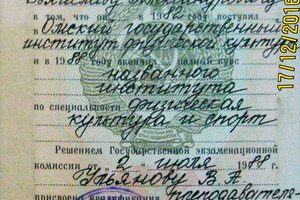 в том, что он в 1982 году поступил
в Омский государственный
институт физической культуры
и в 1988 году окончил полный курс
названного
института
по специальности физическая
культура и спорт
Решением Государственной экзаменационной
комиссии от 2 июля 1988 г.
Ульянову В.А.
присвоена квалификация преподавателя-
17/12/2016